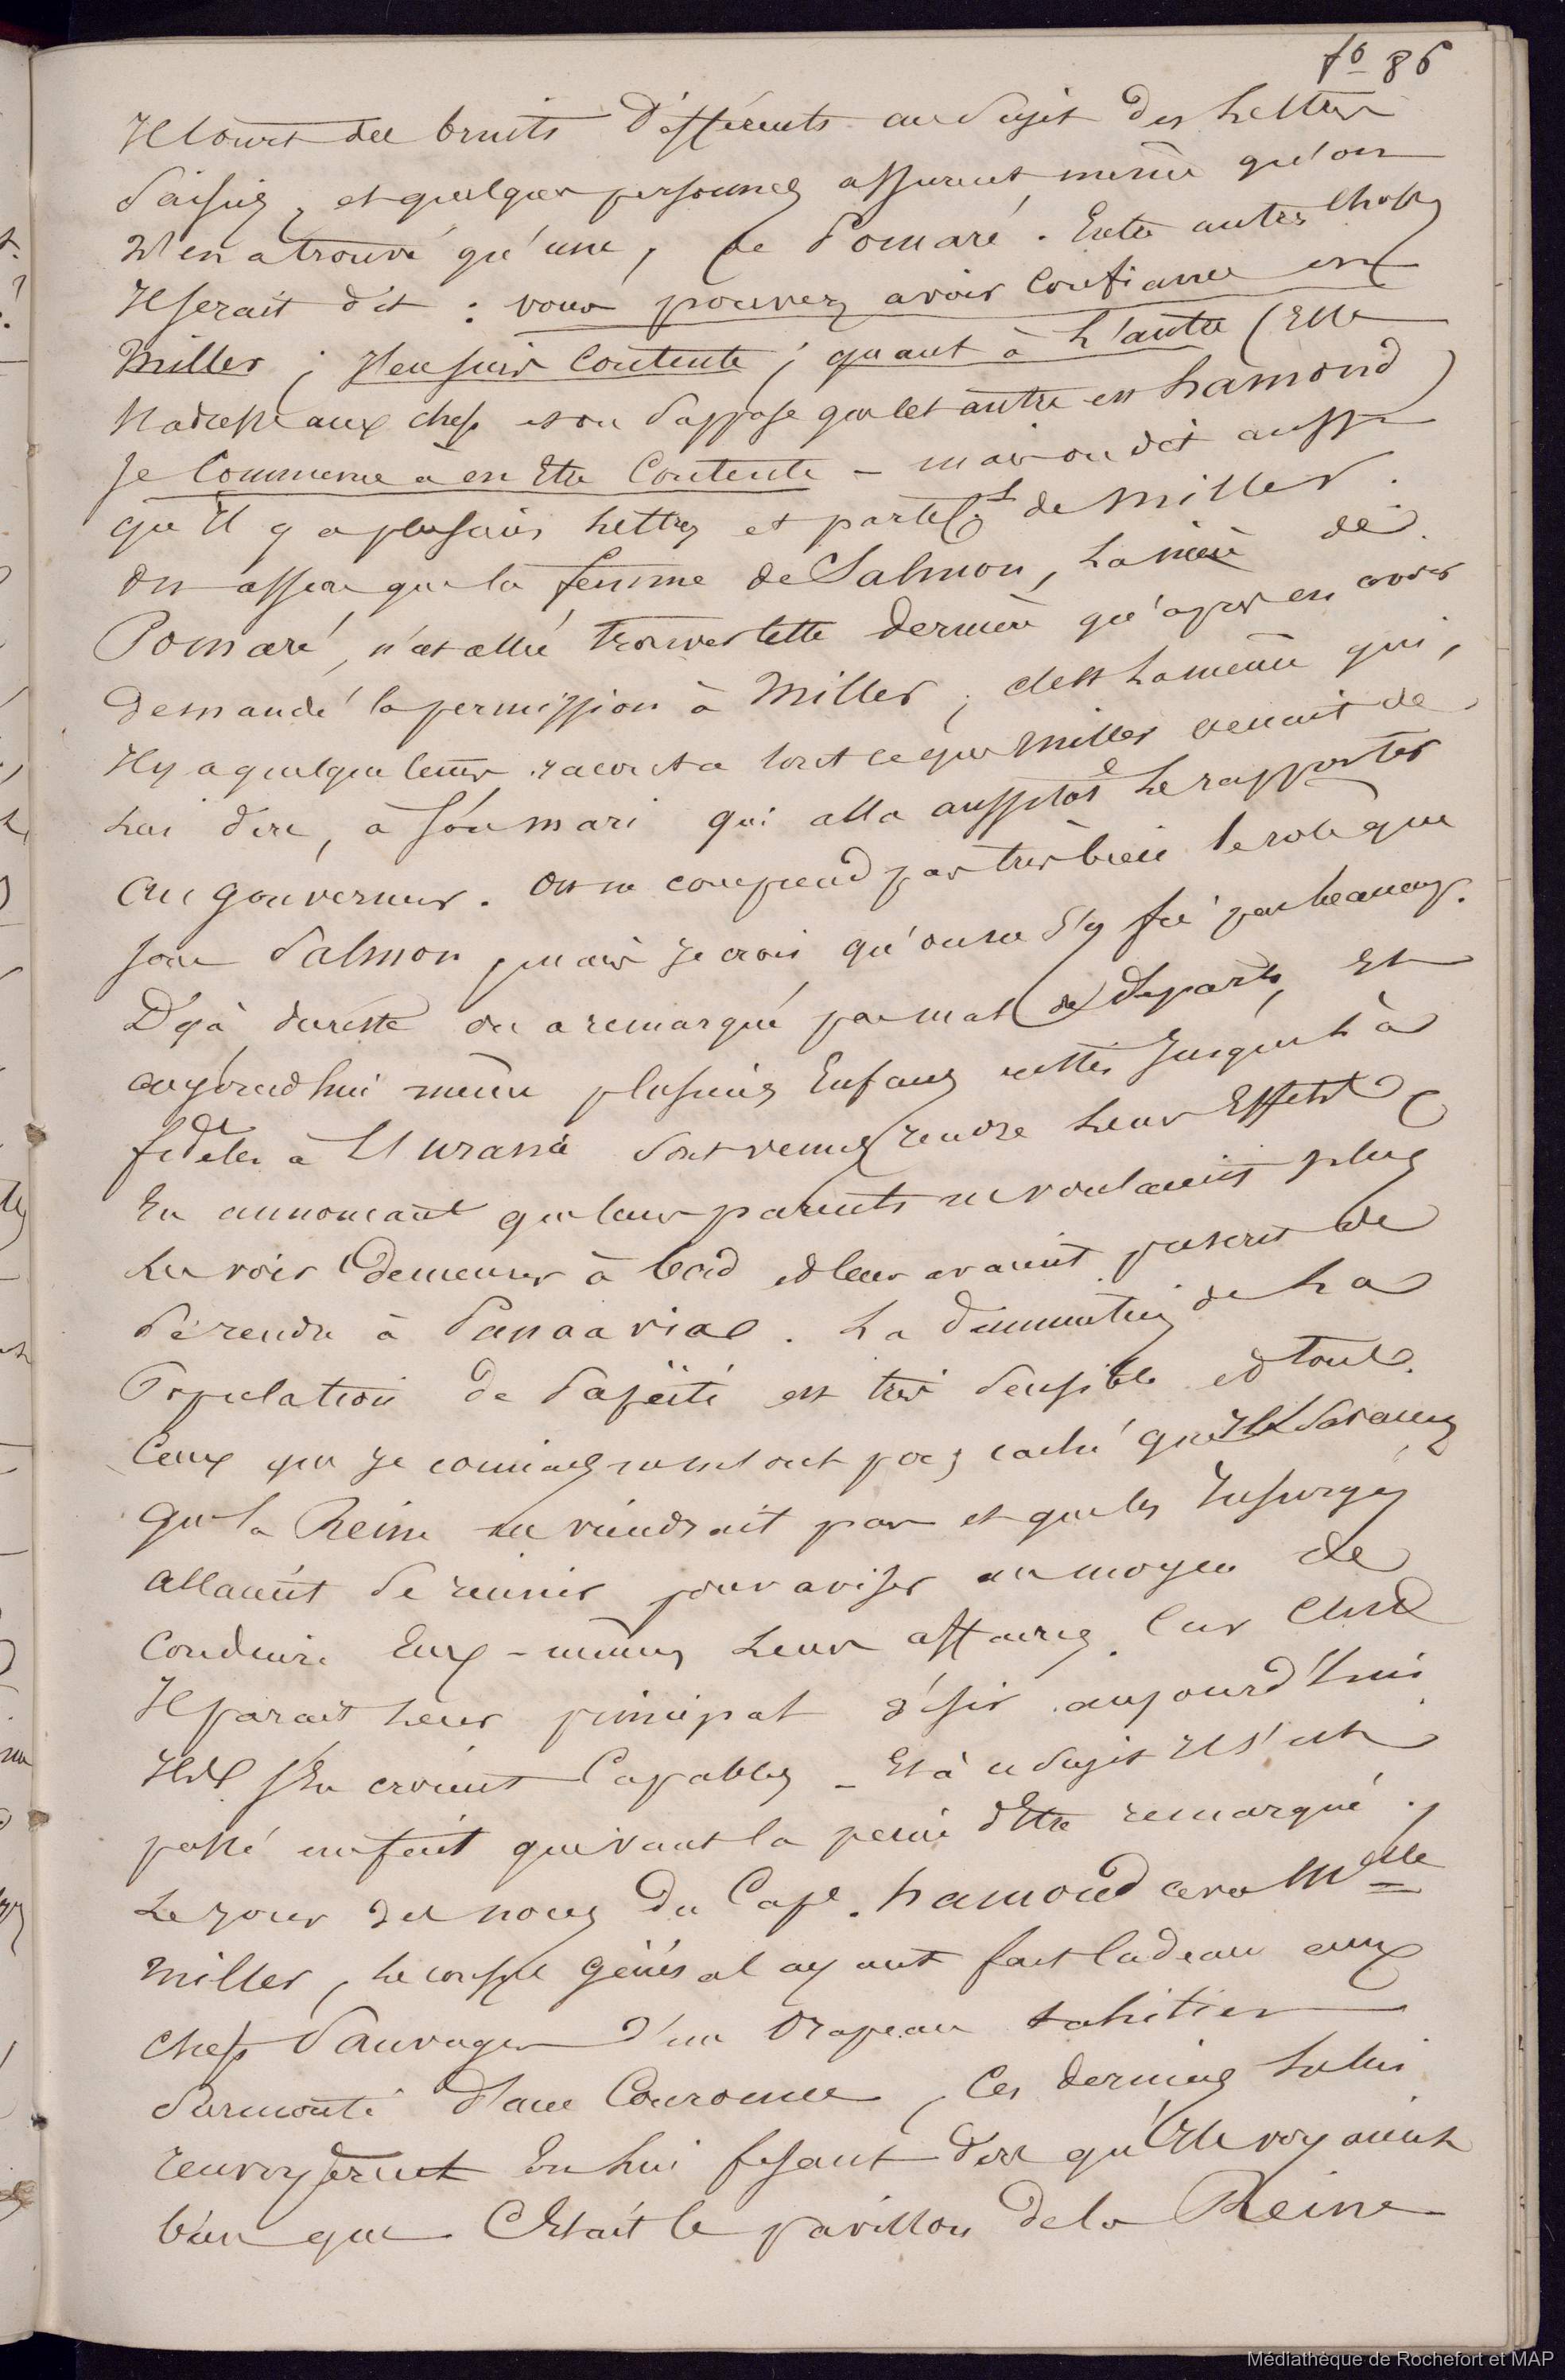 fo 86
Il court des bruits différents au sujet des Lettres
saisies, et quelques personnes assurent même qu'on
N'en a trouvé qu'une, de Pomaré. Entre autres choses
Il serait dit : vous pouvez avoir Confiance en
Miller ; J'en suis Contente ; quant à L'autre (Elle
s'adresse aux chefs et on suppose que cet autre est hamond)
Je Commence à en Etre Contente – mais on dit aussi
qu'Il y a plusieurs Lettres et parlent de Miller.
On assure que la femme de Salmon, La mère de
Pomaré, n'est allée trouver cette dernière qu'après en avoir
Demandé la permission à Miller ; c'est La même qui,
Il y a quelque temps raconta tout ce que Miller venait de
Lui dire, à son mari qui alla aussitôt Le rapporter
au gouverneur. On ne comprend pas très bien le role que
joue Salmon, mais je crois qu'on ne s'y fie pas beaucoup.
Déjà du reste on a remarqué pas mal de départs, Et
aujourd'hui même plusieurs Enfans restés Jusques Là
fidèles à L'Uranie sont venus rendre Leurs Effets
En annonçant que leurs parents ne voulaient plus
Les voir demeurer à bord et leur avaient prescrit de
Se rendre à Punaavia. La diminution de La
Population de Papéïti est très sensible et tous
Ceux que je connais ne m'ont pas caché qu'Ils savaient
Que la Reine ne viendrait pas et que les Insurgés
allaient se réunir pour aviser au moyen de
Conduire Eux-mêmes Leurs affaires. Car C'est
Il parait Leur principal désir aujourd'hui
Ils s'En croient Capables – Et à ce sujet Il s'est
passé un fait qui vaut la peine d'Etre remarqué.
Le jour des noces du Cape. hamond avec Melle
Miller, Le consul Général ayant fait Cadeau aux
Chefs Sauvages d'un Drapeau tahitien
Surmonté d'une Couronne, Ces derniers Le lui
renvoyèrent En Lui fesant dire qu'Ils voyaient
bien que C'Etait le pavillon de la Reine
Médiathèque de Rochefort et MAP